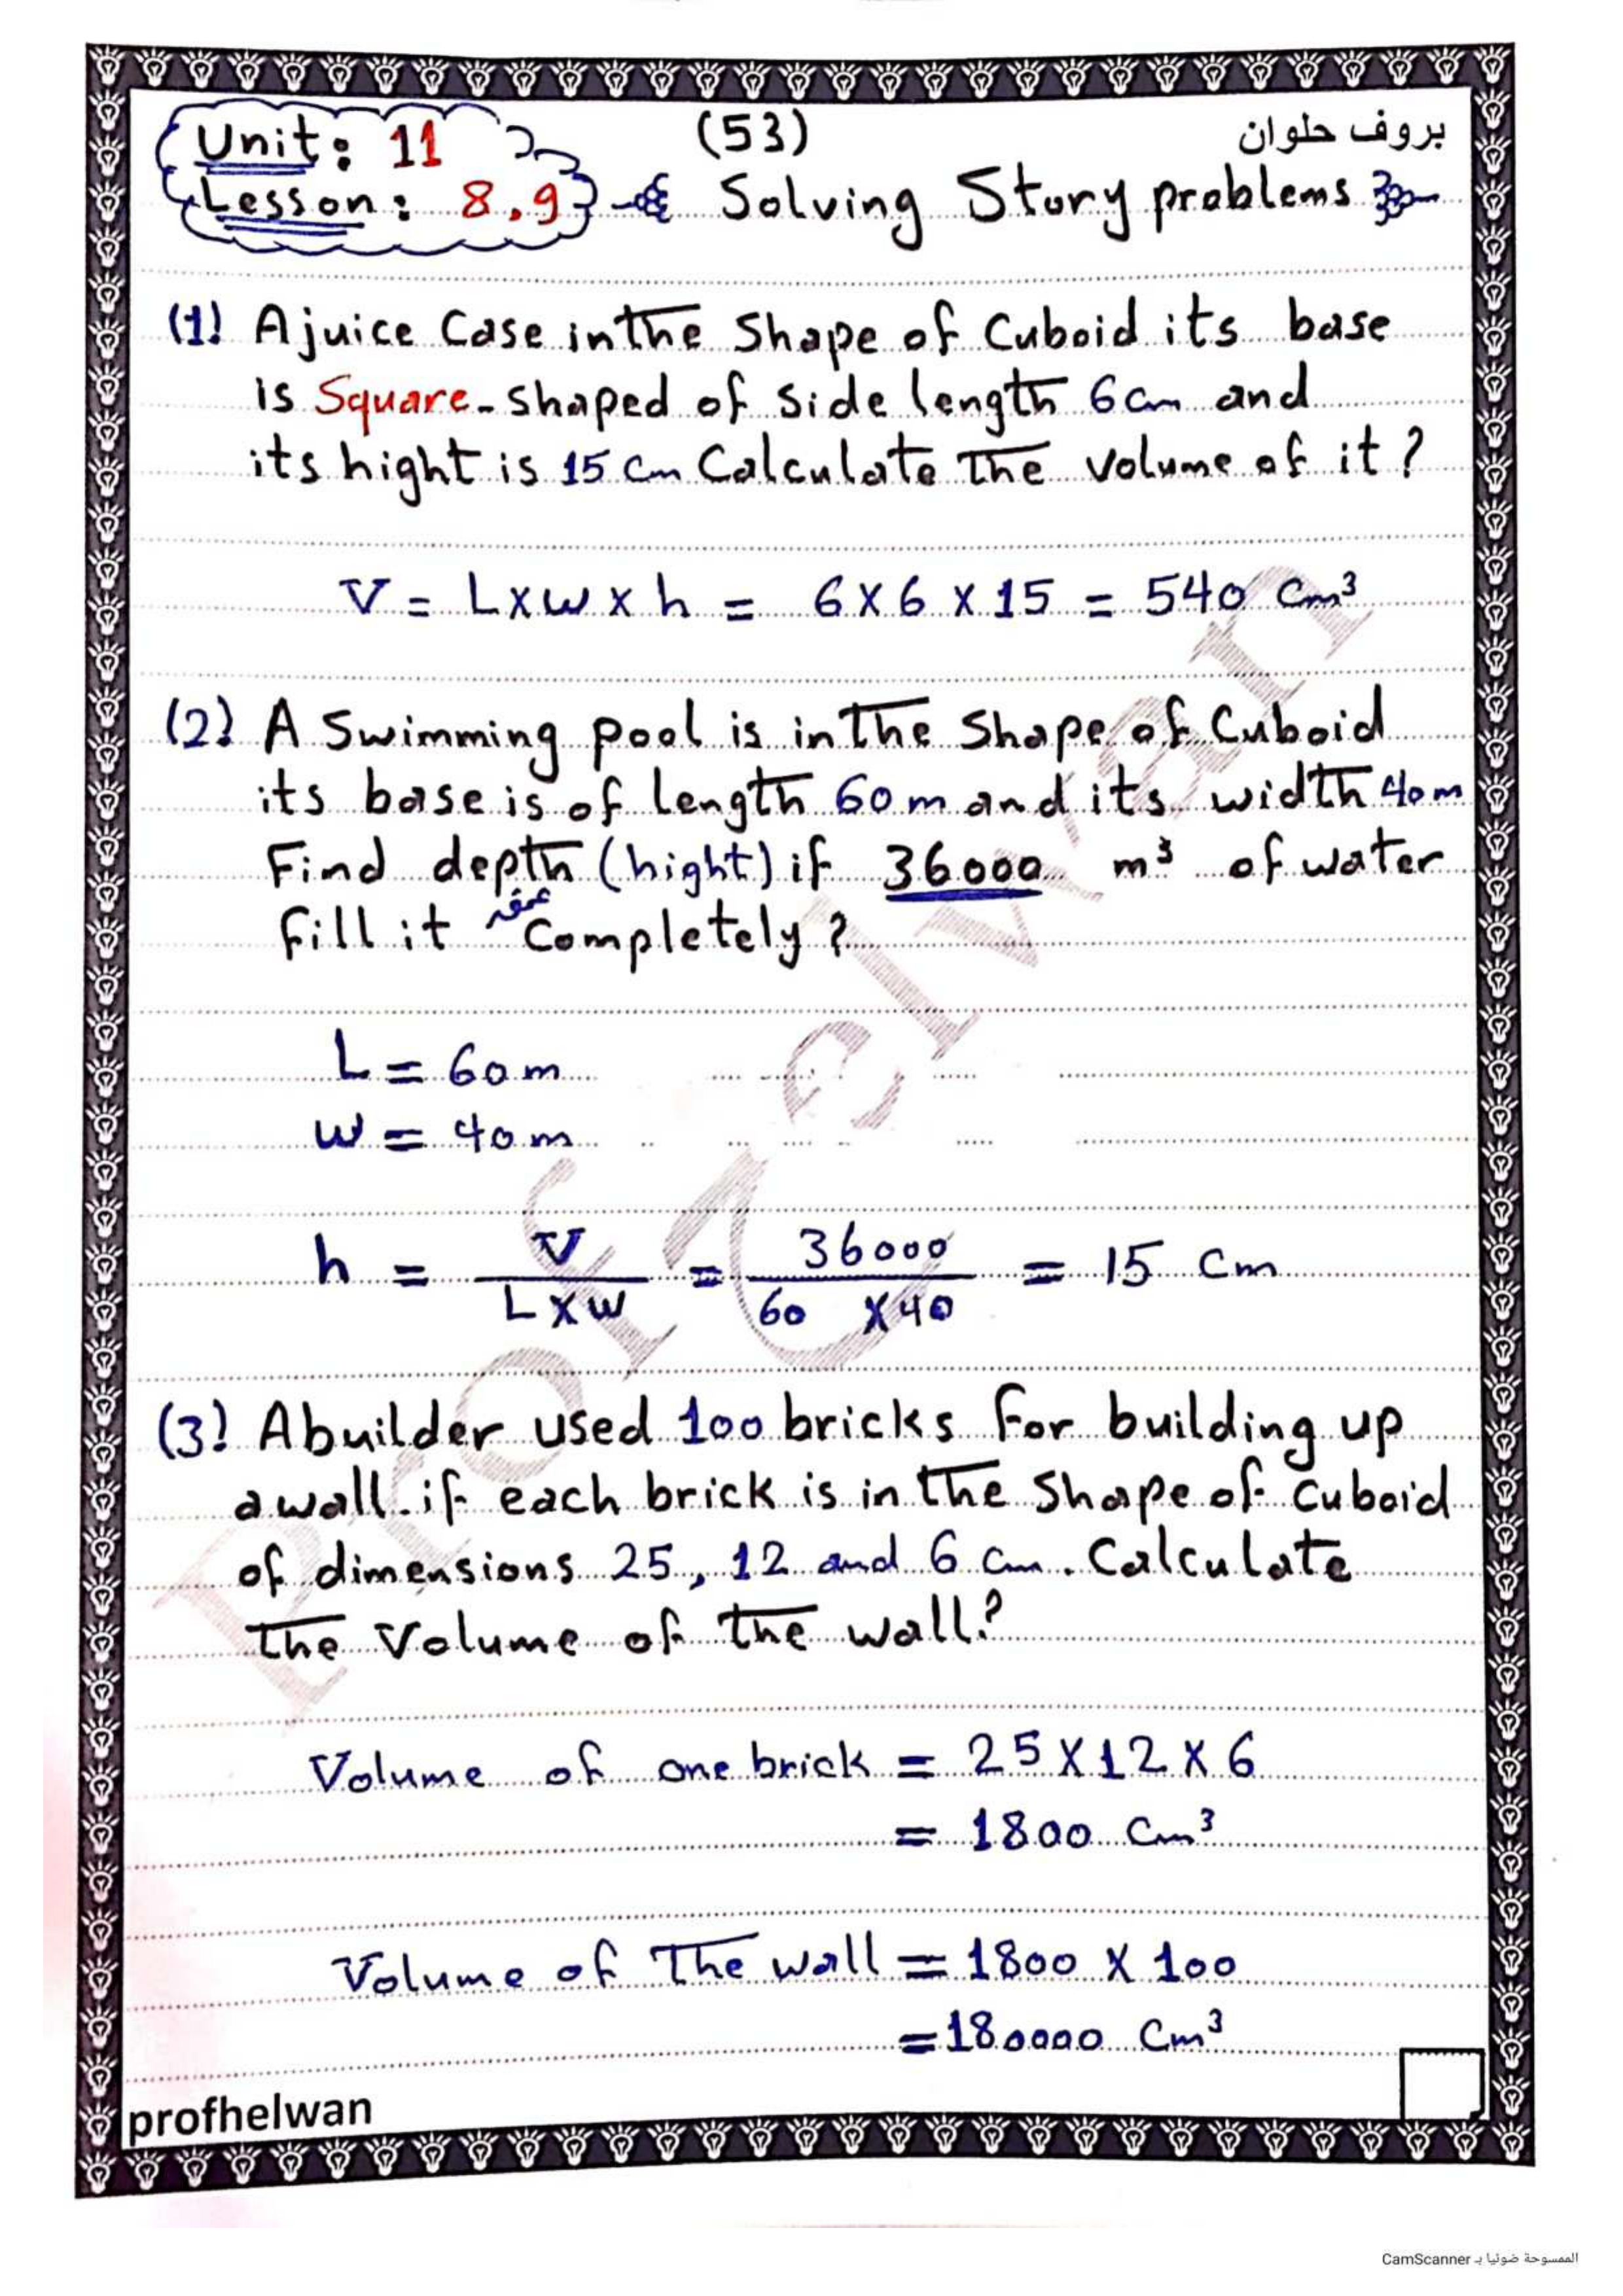 Unit: 11
(53)
بروف حلوان
Lesson: 8,9
Solving Story problems
(1) A juice Case in the Shape of Cuboid its base
is Square-shaped of side length 6 cm and
its hight is 15 cm Calculate The volume of it?
V = L x w x h = 6 x 6 x 15 = 540 cm³
(2) A Swimming pool is in The Shape of Cuboid
its base is of length 60 m and its width 40 m
Find depth (hight) if 36000 m³ of water
عمقه
Fill it Completely?
L = 60 m
W = 40 m
h = V / L x W = 36000 / 60 x 40 = 15 Cm
(3) A builder used 100 bricks For building up
a wall. if each brick is in the Shape of Cuboid
of dimensions 25, 12 and 6 cm. Calculate
The Volume of the wall?
Volume of one brick = 25 x 12 x 6
= 1800 Cm³
Volume of The wall = 1800 x 100
= 180000 Cm³
profhelwan
Prof Helwan
الممسوحة ضوئيا بـ CamScanner